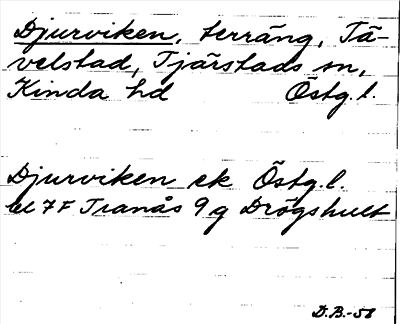 Djurviken, terräng, Tä-
velstad, Tjärstads sn,
Kinda hd Östg.l.
Djurviken ek Östg.l.
bl 7F Tranås 9g Drögshult
D.B.-58